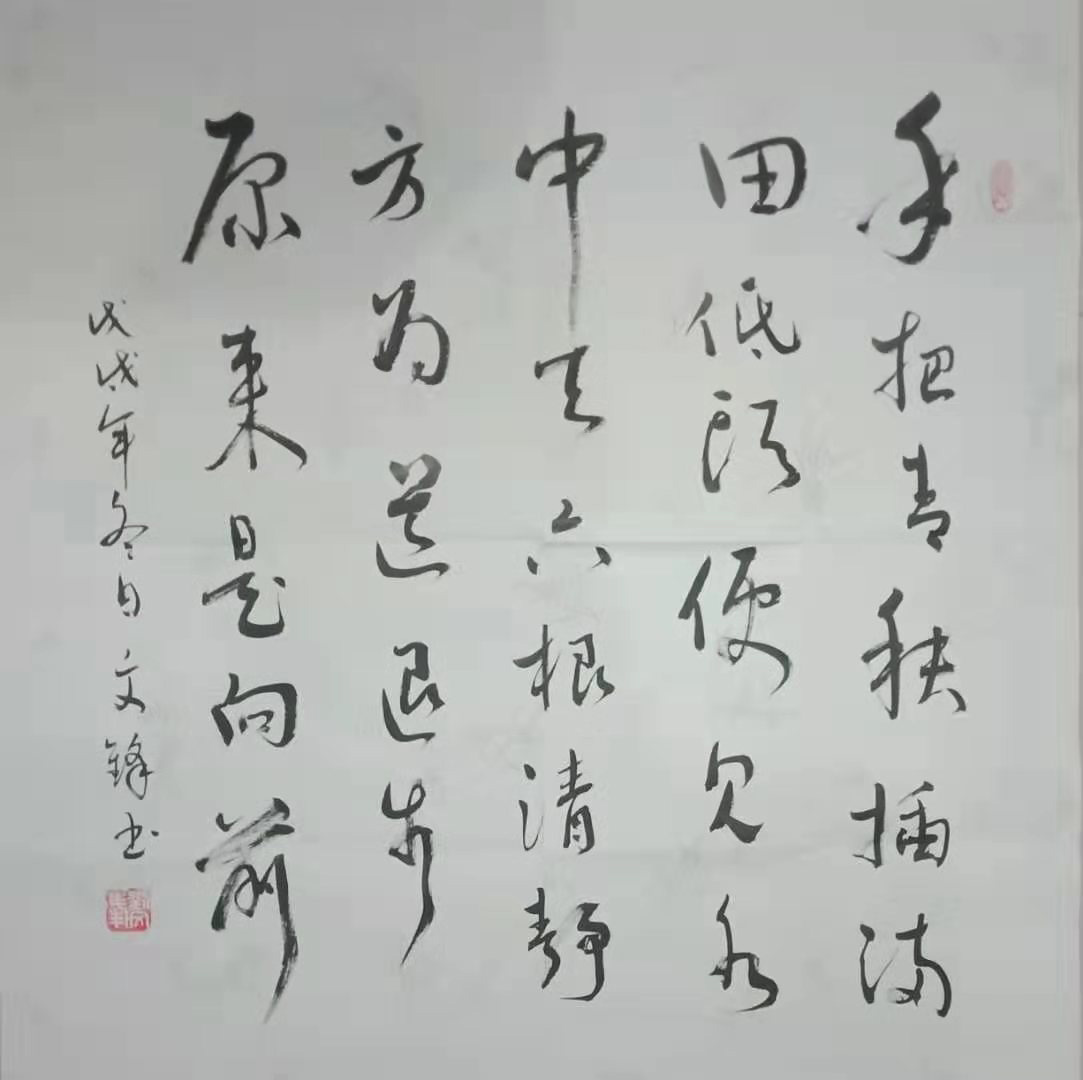 手把青秧插满
田低头便见水
中天六根清静
方为道退步
原来是向前
戊戌年冬日文锋书